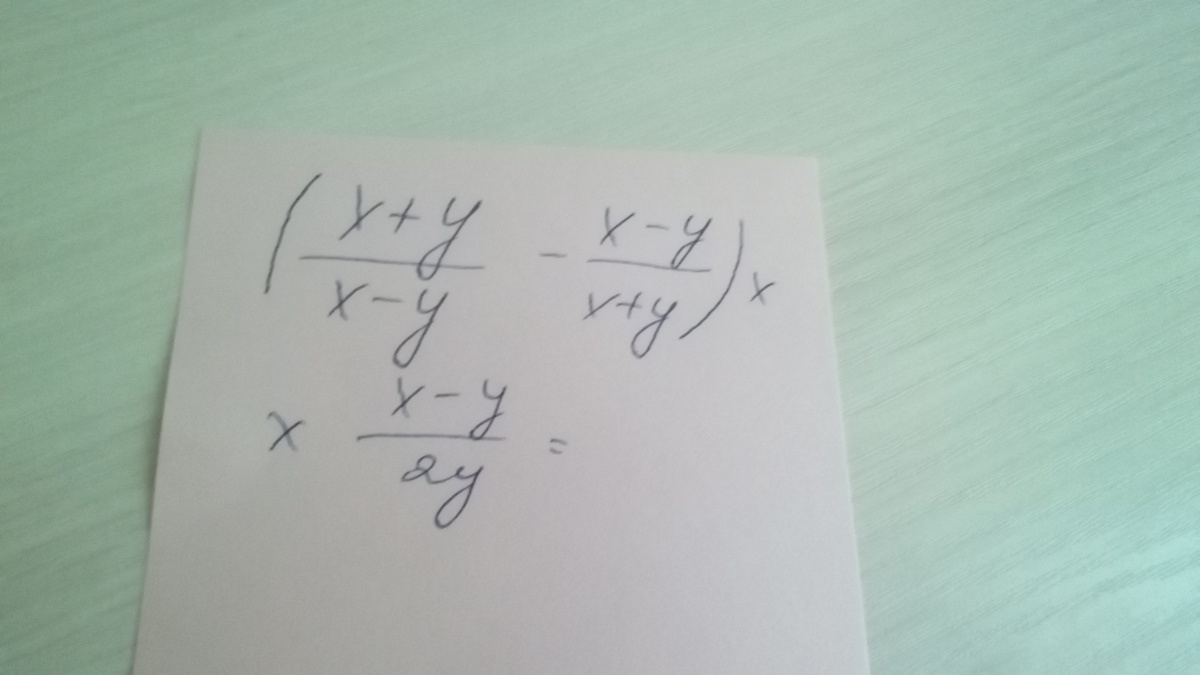 ( x+y / x-y - x-y / x+y ) x
x x-y / 2y =